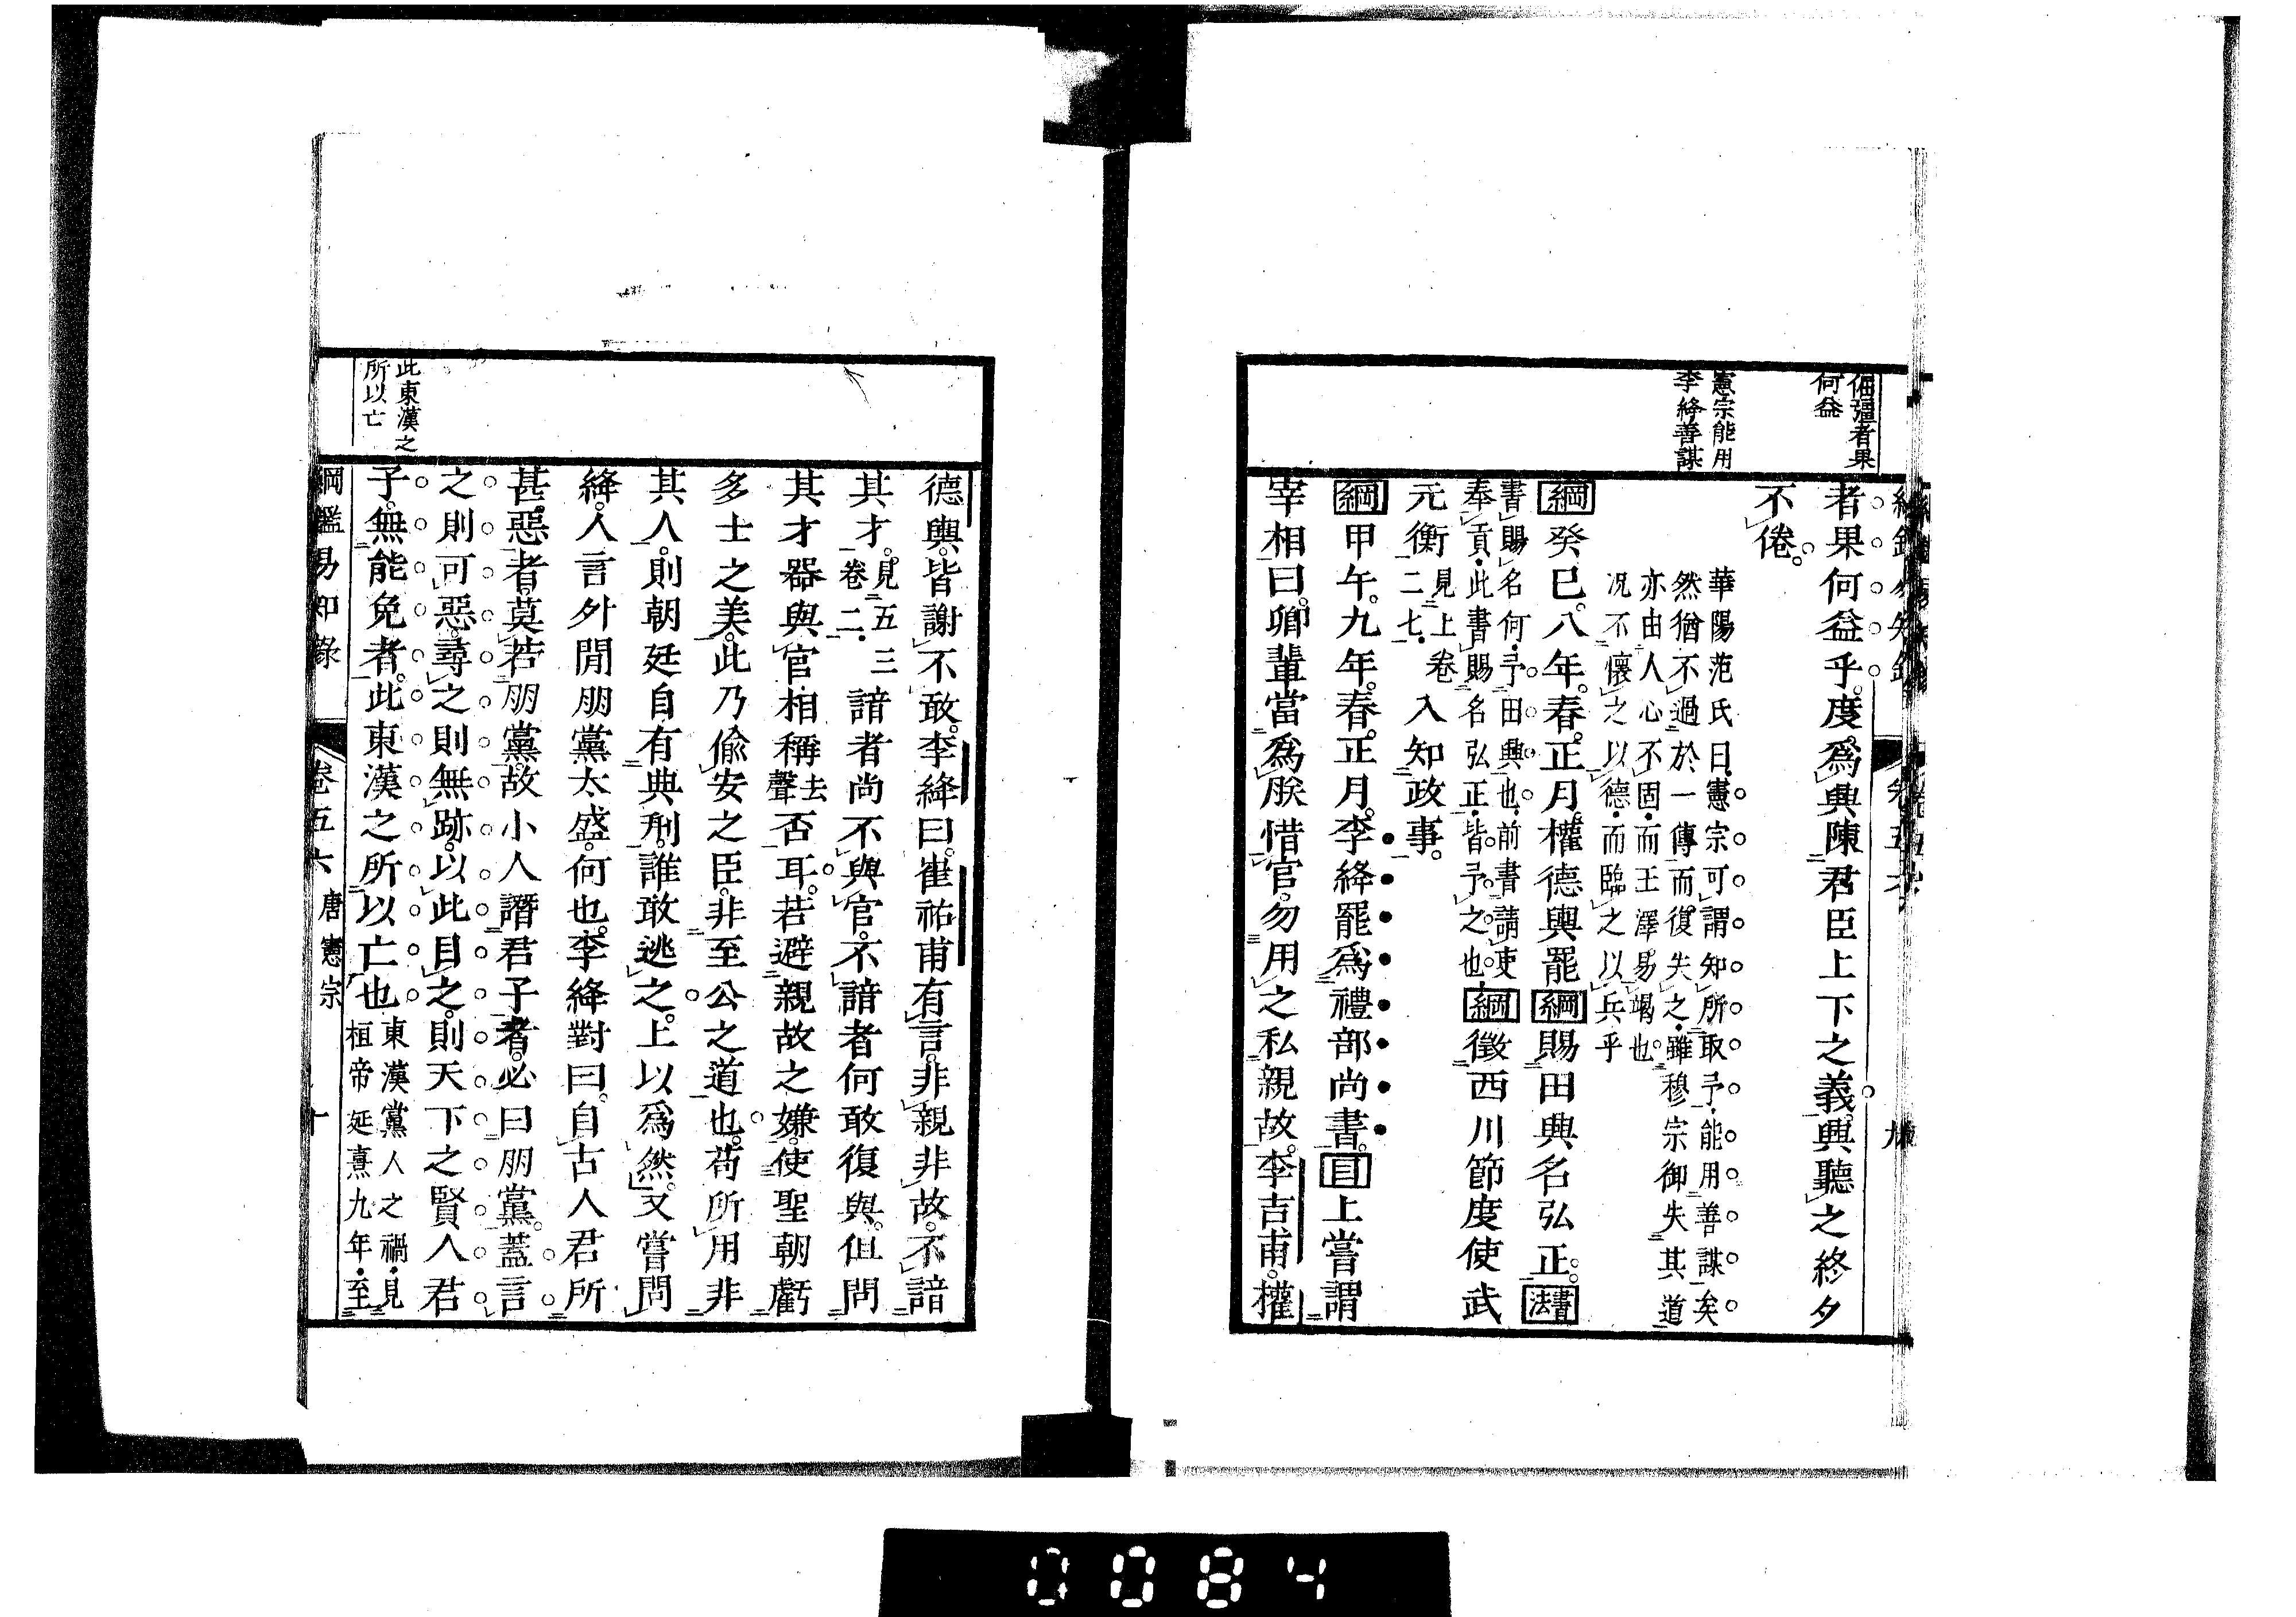 倔彊者果
何益
憲宗能用
李絳善謀
者果何益乎。度爲興陳君臣上下之義。興聽之終夕
不倦。
華陽范氏曰。憲宗可謂知所取予。能用善謀矣
然猶不過於一傳而復失之。雖穆宗御失其道
亦由人心不固。而王澤易竭也。
况不懷之以德。而臨之以兵乎
綱癸巳。八年。春。正月。權德輿罷綱賜田興名弘正。書法
書賜名何。予田興也。前書請吏
奉貢。此書賜名弘正。皆予之也。綱徵西川節度使武
元衡見上卷二七。入知政事。
綱甲午。九年。春。正月。李絳罷爲禮部尚書。目上嘗謂
宰相曰。卿輩當爲朕惜官。勿用之私親故。李吉甫。權
此東漢之
所以亡
德輿。皆謝不敢。李絳曰。崔祐甫有言。非親非故。不諳
其才。見五三卷二。諳者尚不與官。不諳者何敢復與。但問
其才器與官相稱去聲否耳。若避親故之嫌。使聖朝虧
多士之美。此乃偸安之臣。非至公之道也。苟所用非
其人。則朝廷自有典刑。誰敢逃之。上以爲然。又嘗問
絳。人言外閒朋黨太盛。何也。李絳對曰。自古人君所
甚惡者。莫若朋黨。故小人譖君子者。必曰朋黨。蓋言
之則可惡。尋之則無跡。以此目之。則天下之賢人君
子。無能免者。此東漢之所以亡也東漢黨人之禍。見
桓帝延熹九年。至
綱鑑易知錄 卷五六 唐憲宗 十
0084